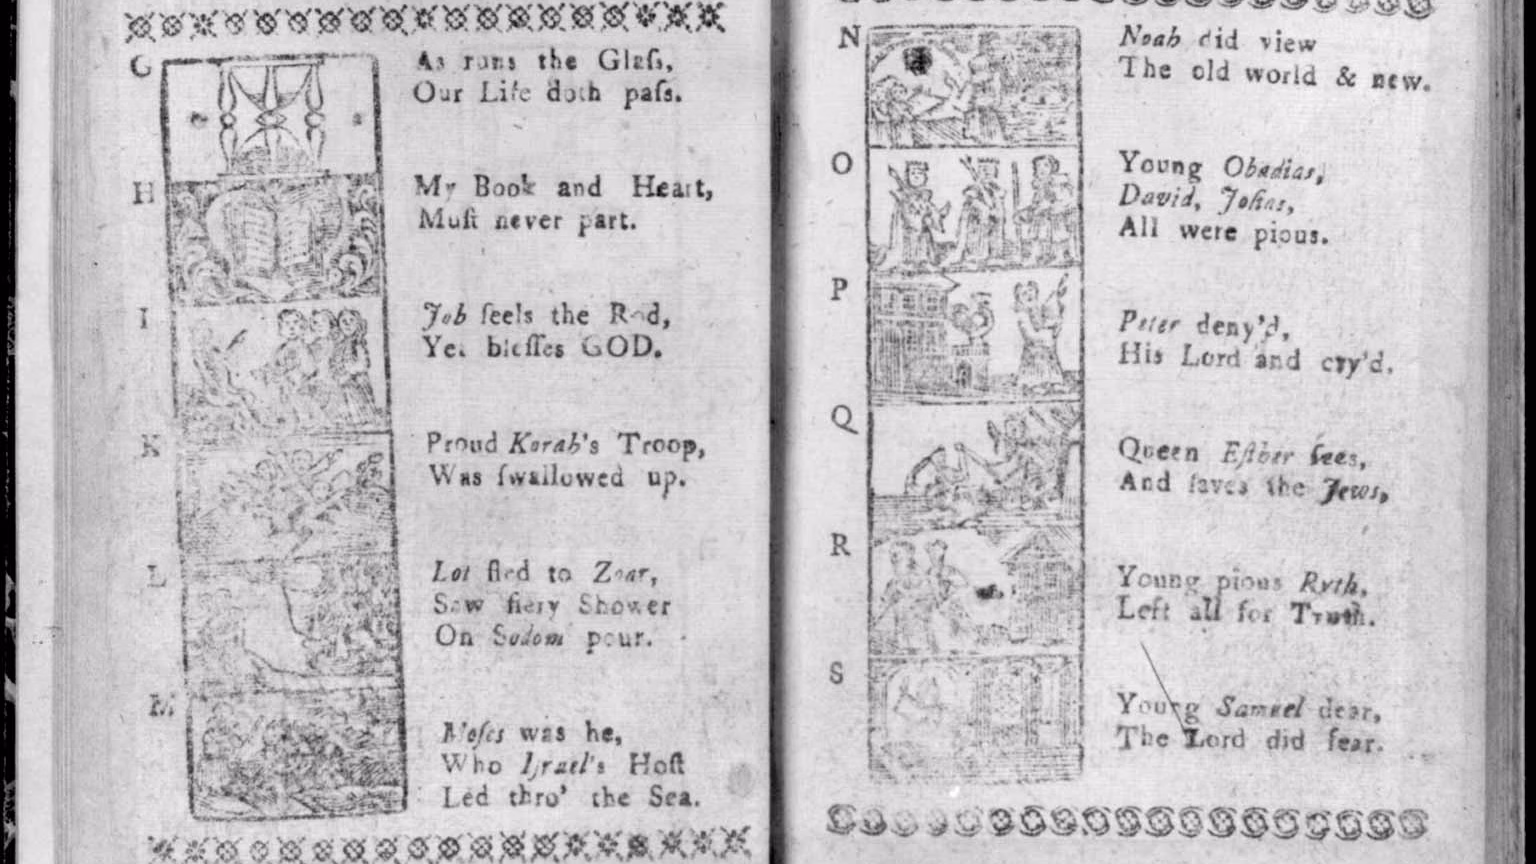 G
As runs the Glaſs,
Our Life doth paſs.
H
My Book and Heart,
Muſt never part.
I
Job feels the Rod,
Yet bleſſes GOD.
K
Proud Korah's Troop,
Was ſwallowed up.
L
Lot fled to Zoar,
Saw fiery Shower
On Sodom pour.
M
Moſes was he,
Who Iſrael's Hoſt
Led thro' the Sea.
N
Noah did view
The old world & new.
O
Young Obadias,
David, Joſias,
All were pious.
P
Peter deny'd,
His Lord and cry'd.
Q
Queen Eſther ſees,
And ſaves the Jews,
R
Young pious Ryth,
Left all for Truth.
S
Young Samuel dear,
The Lord did fear.